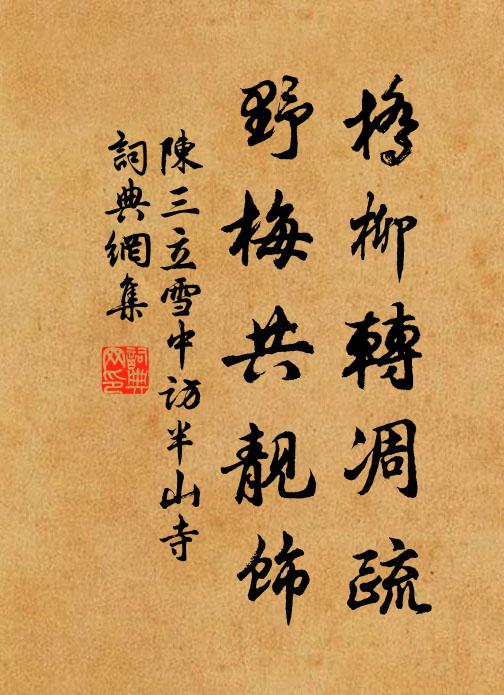 橋柳轉凋疏
野梅共靚飾
陳三立雪中訪半山寺
詞典網集
詞典網印